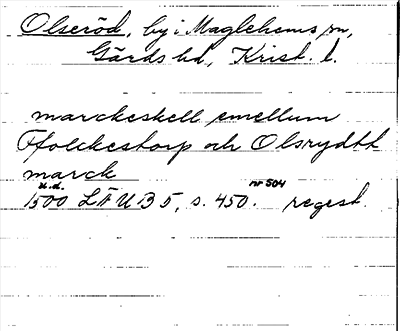 Olseröd, by i Maglehems sn,
Gärds hd, Krist. l.
marckeskell emellum
Ffolckestorp och Olsrydtt
marck
u.d. nr 504
1500 LÄUB 5, s. 450. regest.